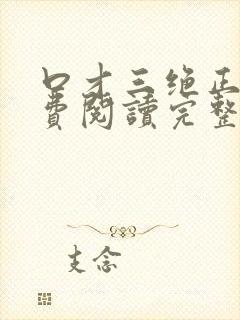 口才三绝正
費閱讀完整
支念